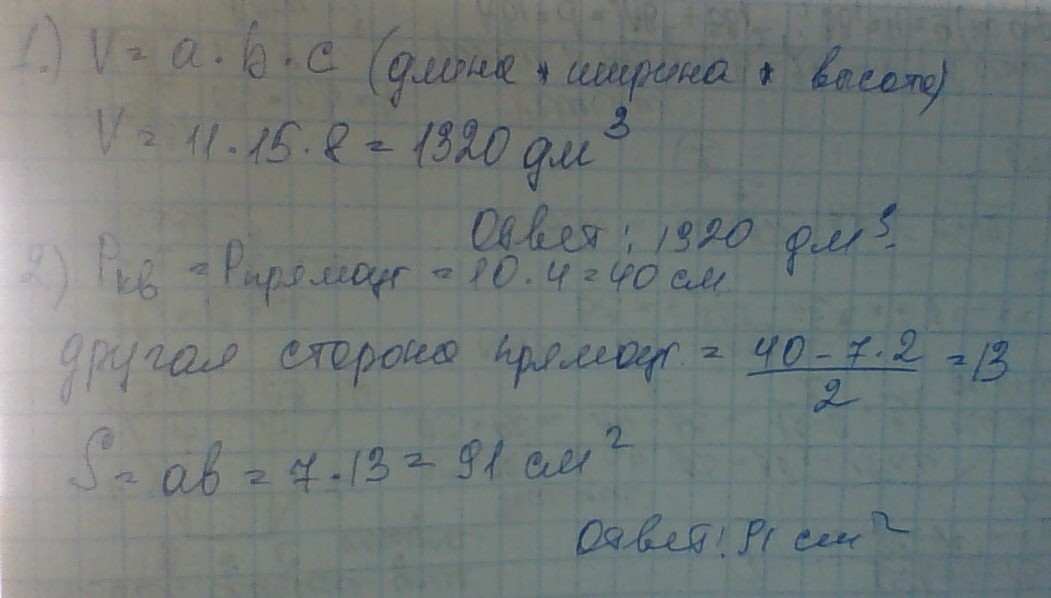 1.) V = a · b · c (длина * ширина * высота)
V = 11 · 15 · 8 = 1320 дм³
Ответ: 1320 дм³.
2) Pкв = Pпрямоуг = 10 · 4 = 40 см
другая сторона прямоуг. = (40 - 7 · 2)/2 = 13
S = ab = 7 · 13 = 91 см²
Ответ: 91 см²